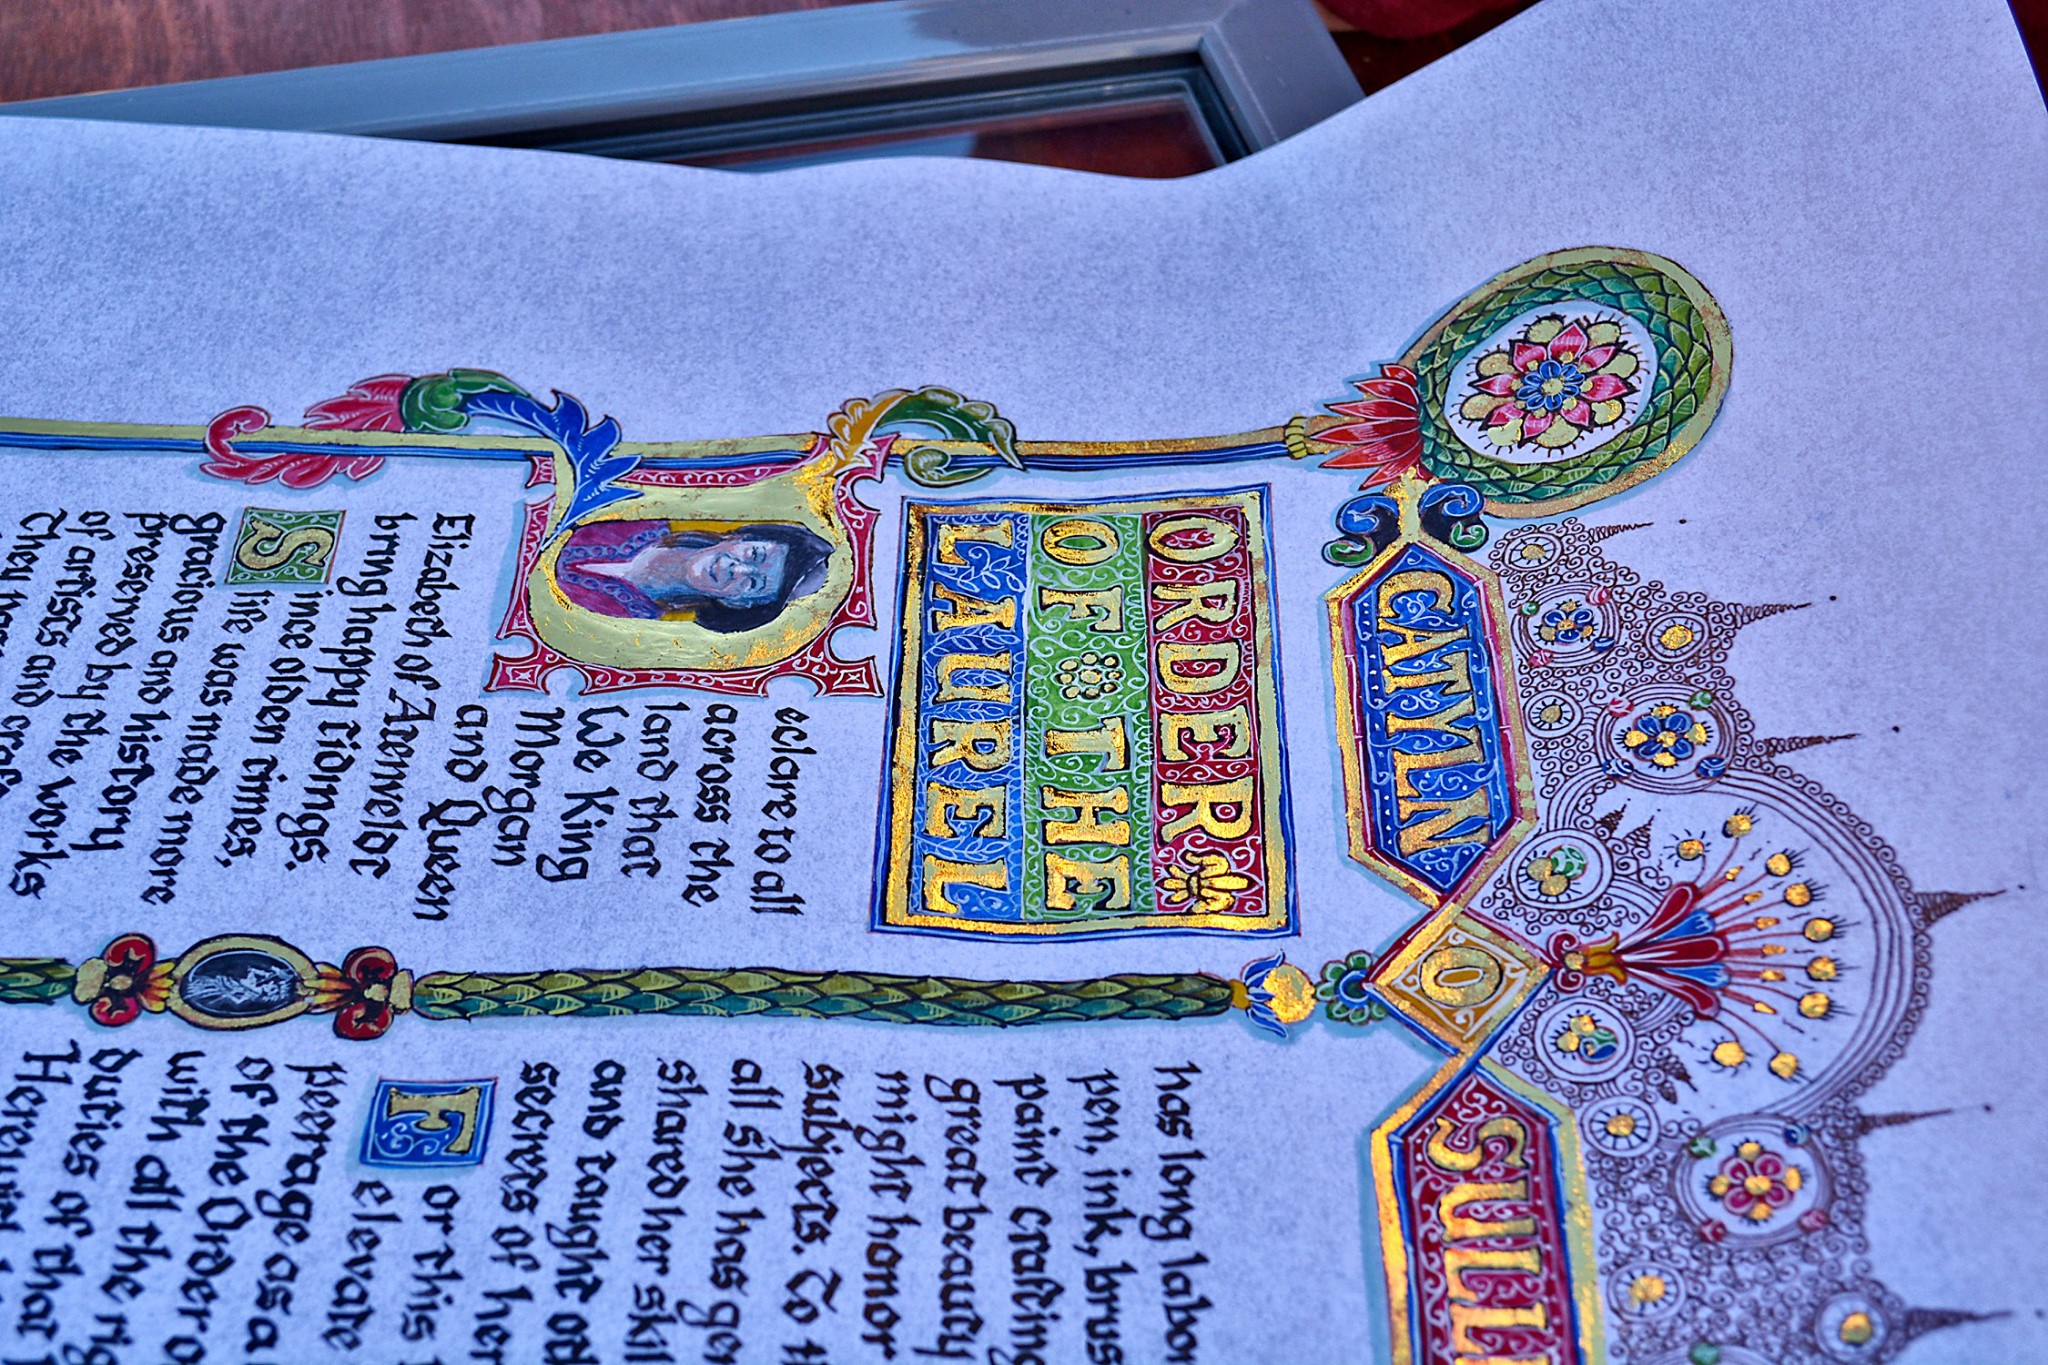 CATYLN
O
SULL
ORDER
OF THE
LAUREL
eclare to all
across the
land that
We King
Morgan
and Queen
Elizabeth of Aremelor
bring happy tidings.
S ince olden times,
life was made more
gracious and history
preserved by the works
of artists and
They
has long labo
pen, ink, brus
paint crafting
great beauty
might honor
subjects. To
all she has ge
shared her skil
and taught
secrets of her
F or this
elevate
peerage as a
of the Order o
with all the rig
duties of that